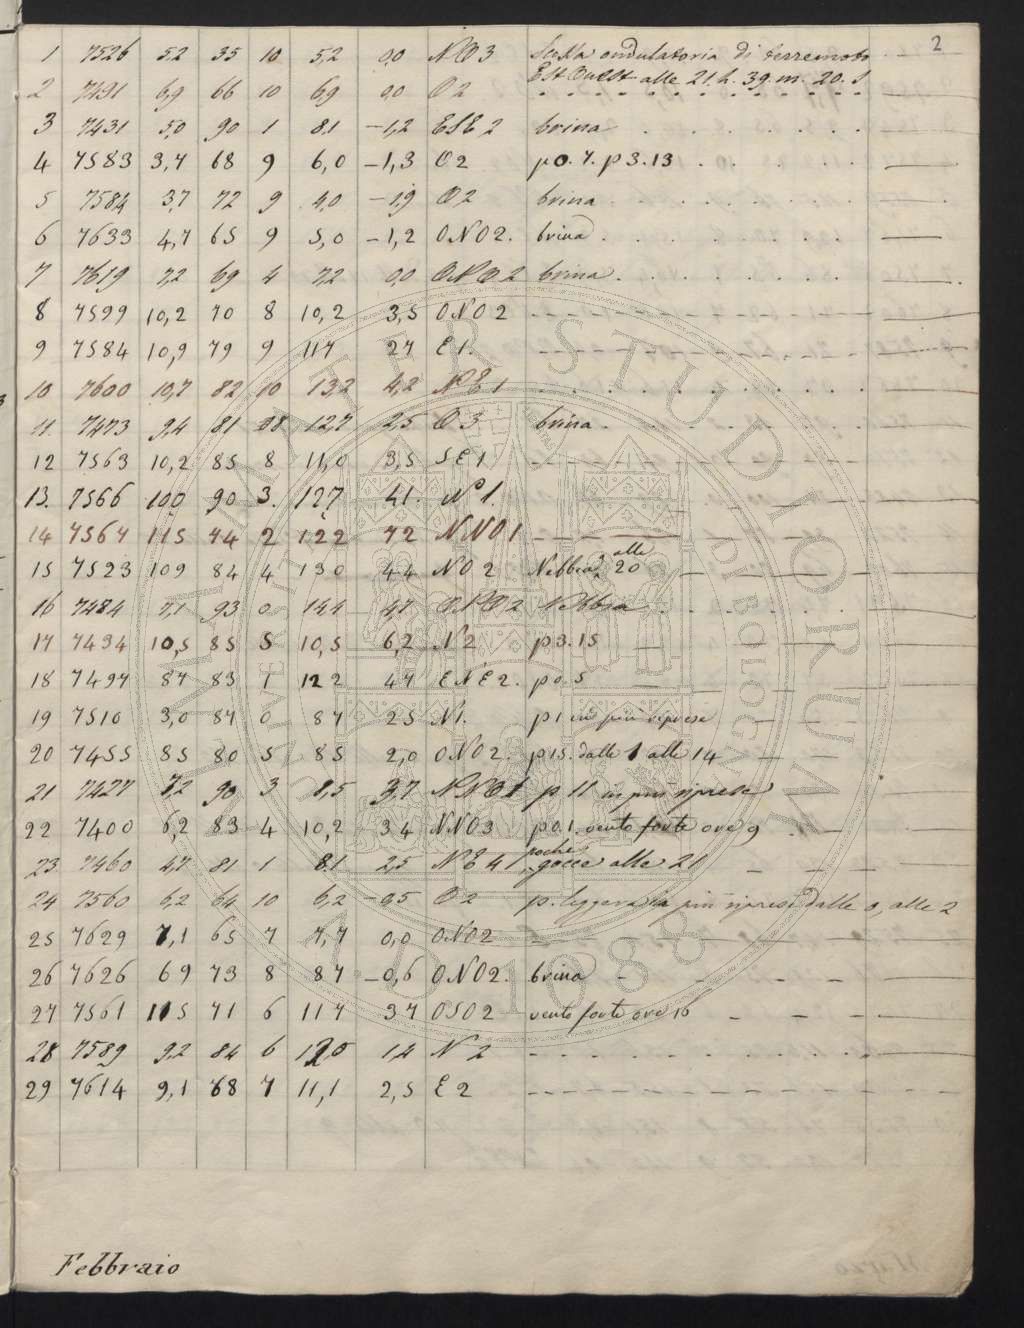 2
1 7526 5.2 35 10 5,2 0,0 NO3 Scossa ondulatoria di terremoto
Est Ouest alle 21. h. 39. m. 20. s
2 7491 6,9 66 10 6,9 0,0 O2
3 7431 5,0 90 1 8.1 -1,2 ESE 2 brina
4 7583 3,7 68 9 6,0 -1,3 O2 p 0. 7. p 3. 13
5 7584 3,7 72 9 4,0 -1,9 O2 brina
6 7633 4,7 65 9 5,0 -1,2 ONO2. brina
7 7619 7,2 69 4 7,2 0,0 ONO2 brina
8 7599 10,2 70 8 10,2 3,5 ONO2
9 7584 10,9 79 9 117 27 E1.
10 7600 10,7 82 10 13,2 4,2 NE1
11 7473 9,4 81 12,7 2,5 O3 brina
12 7563 10,2 85 8 11,0 3,5 SE1
13. 7566 10,0 90 3. 12,7 41. N1.
14 7567 115 74 2 122 72 NNO1
15 7523 109 84 4 130 44 NO2 Nebbia alle 20
16 7484 7,1 93 0 144 4,7 ONO2 Nebbia
17 7494 10,5 85 5 10,5 6,2 N2 p 3. 15
18 7497 87 83 1 122 47 ENE2. p 0. 5
19 7510 3,0 87 0 87 25 N1. p 1 in più riprese
20 7455 85 80 5 85 2,0 ONO2. p 15. dalle 1 alle 14
21 7427 7,2 90 3 8,5 3,7 NNO1 p 11 in più riprese
22 7400 6,2 83 4 10,2 34 NNO3 p 0. 1. vento forte ore 9
23 7460 4,7 81 1 8.1 2,5 NE41 poche gocce alle 21
24 7560 6,2 64 10 6,2 -0,5 O2 p. leggera in più riprese dalle 0, alle 2
25 7629 7,1 65 7 7,7 0,0 ONO2
26 7626 69 73 8 87 -0,6 ONO2. brina
27 7561 115 71 6 117 37 OSO2 vento forte ore 16
28 7589 9,2 84 6 12,0 1,4 N2
29 7614 9,1 68 7 11,1 2,5 E2
Febbraio
ALMA MATER STUDIORUM
A.D. 1088